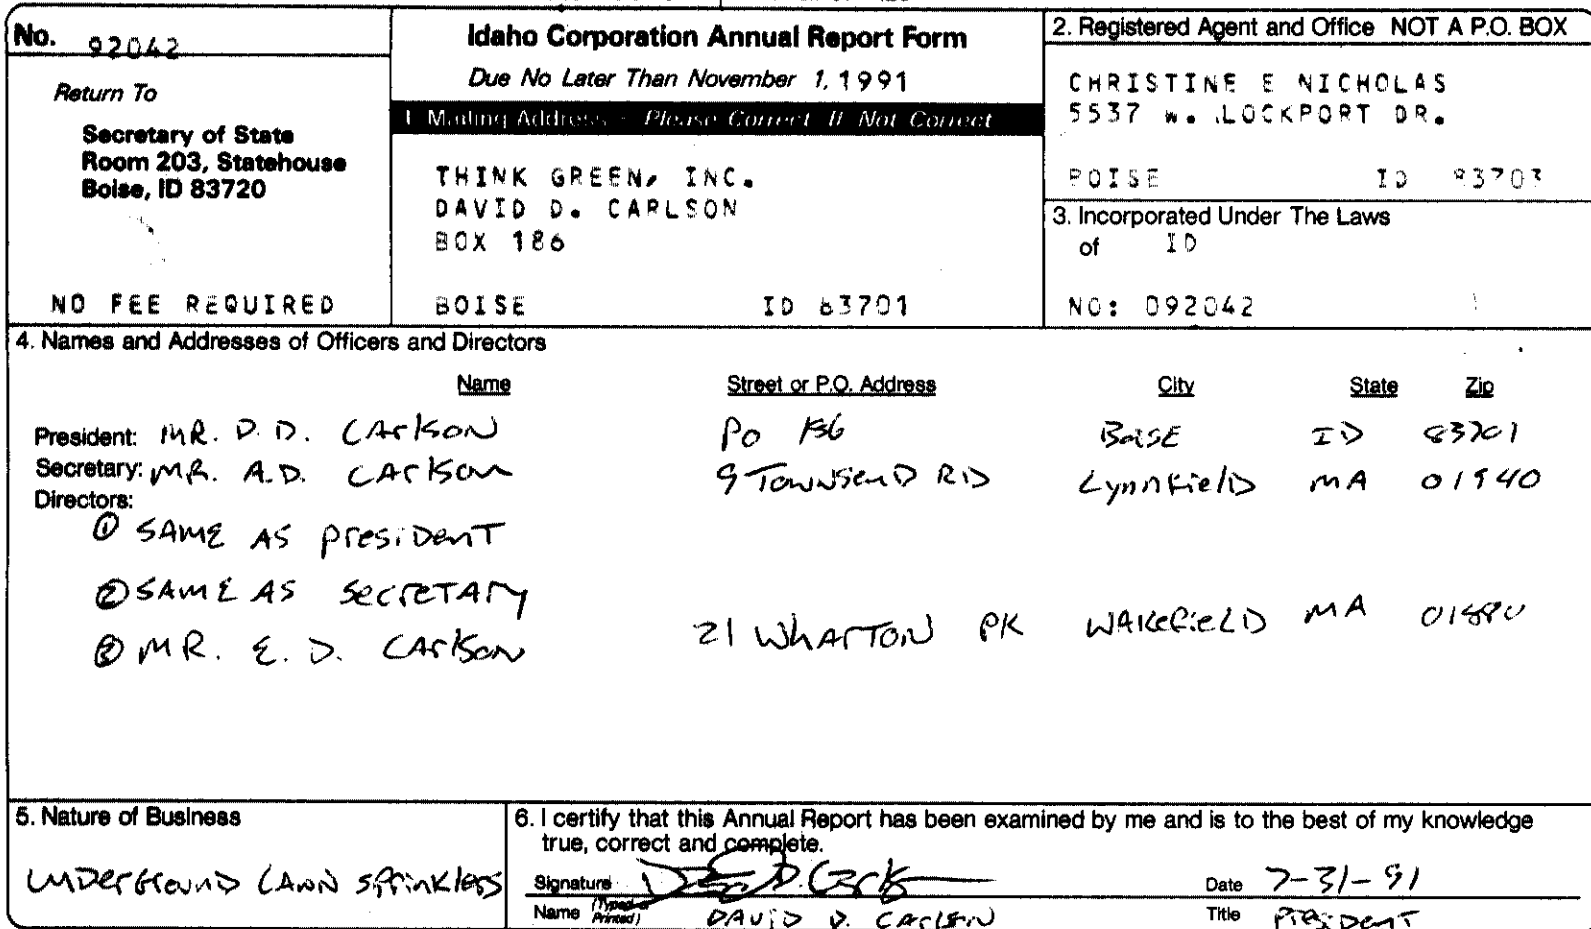 No. 92042
Return To
Secretary of State
Room 203, Statehouse
Boise, ID 83720
NO FEE REQUIRED
Idaho Corporation Annual Report Form
Due No Later Than November 1, 1991
1. Mailing Address - Please Correct If Not Correct
THINK GREEN, INC.
DAVID D. CARLSON
BOX 186
BOISE ID 83701
2. Registered Agent and Office NOT A P.O. BOX
CHRISTINE E NICHOLAS
5537 W. LOCKPORT DR.
BOISE ID 83703
3. Incorporated Under The Laws
of ID
NO: 092042
4. Names and Addresses of Officers and Directors
Name Street or P.O. Address City State Zip
President: MR. D. D. CArlSON PO 186 BoiSE ID 83701
Secretary: MR. A.D. CArlSon 9 TownSenD RD LynnfielD MA 01940
Directors:
① SAME AS presiDenT
② SAME AS SecreTAry
③ MR. E. D. CArlSon 21 WhArTON PK WAKefielD MA 01880
5. Nature of Business
UnDergrounD LAwn SprinKlers
6. I certify that this Annual Report has been examined by me and is to the best of my knowledge
true, correct and complete.
Signature Date 7-31-91
Name (Typed or Printed) DAViD D. CArlSON Title PresiDenT